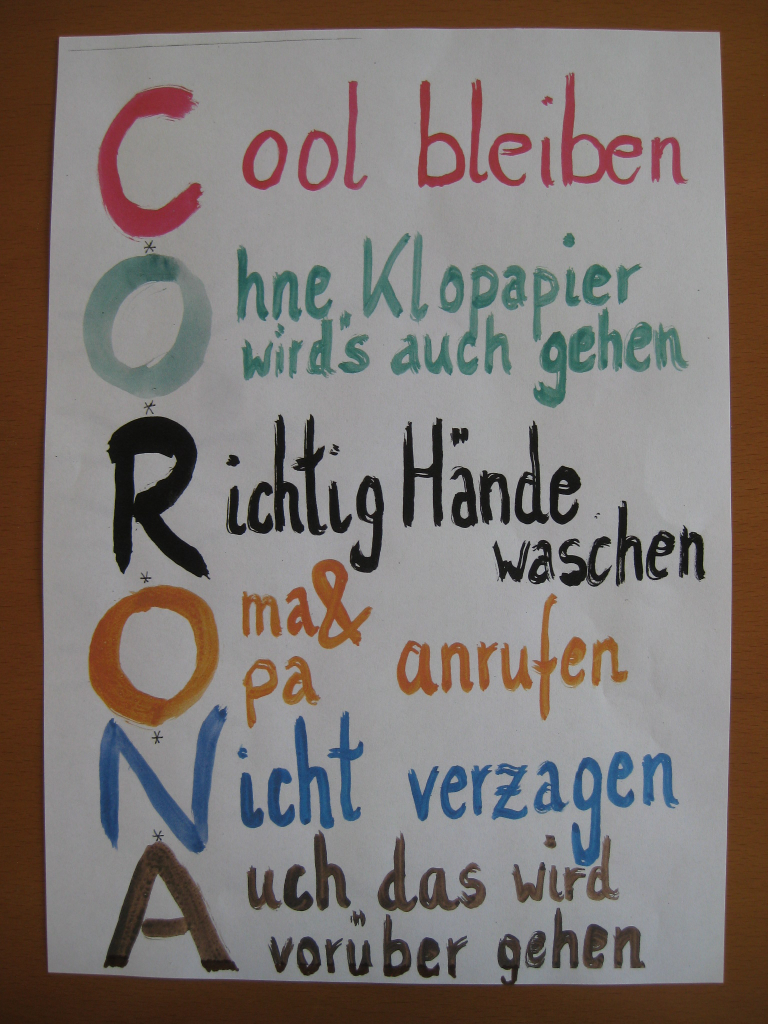 Cool bleiben
*
Ohne Klopapier
wird's auch gehen
*
Richtig Hände
waschen
*
Oma &
pa anrufen
*
Nicht verzagen
*
Auch das wird
vorüber gehen